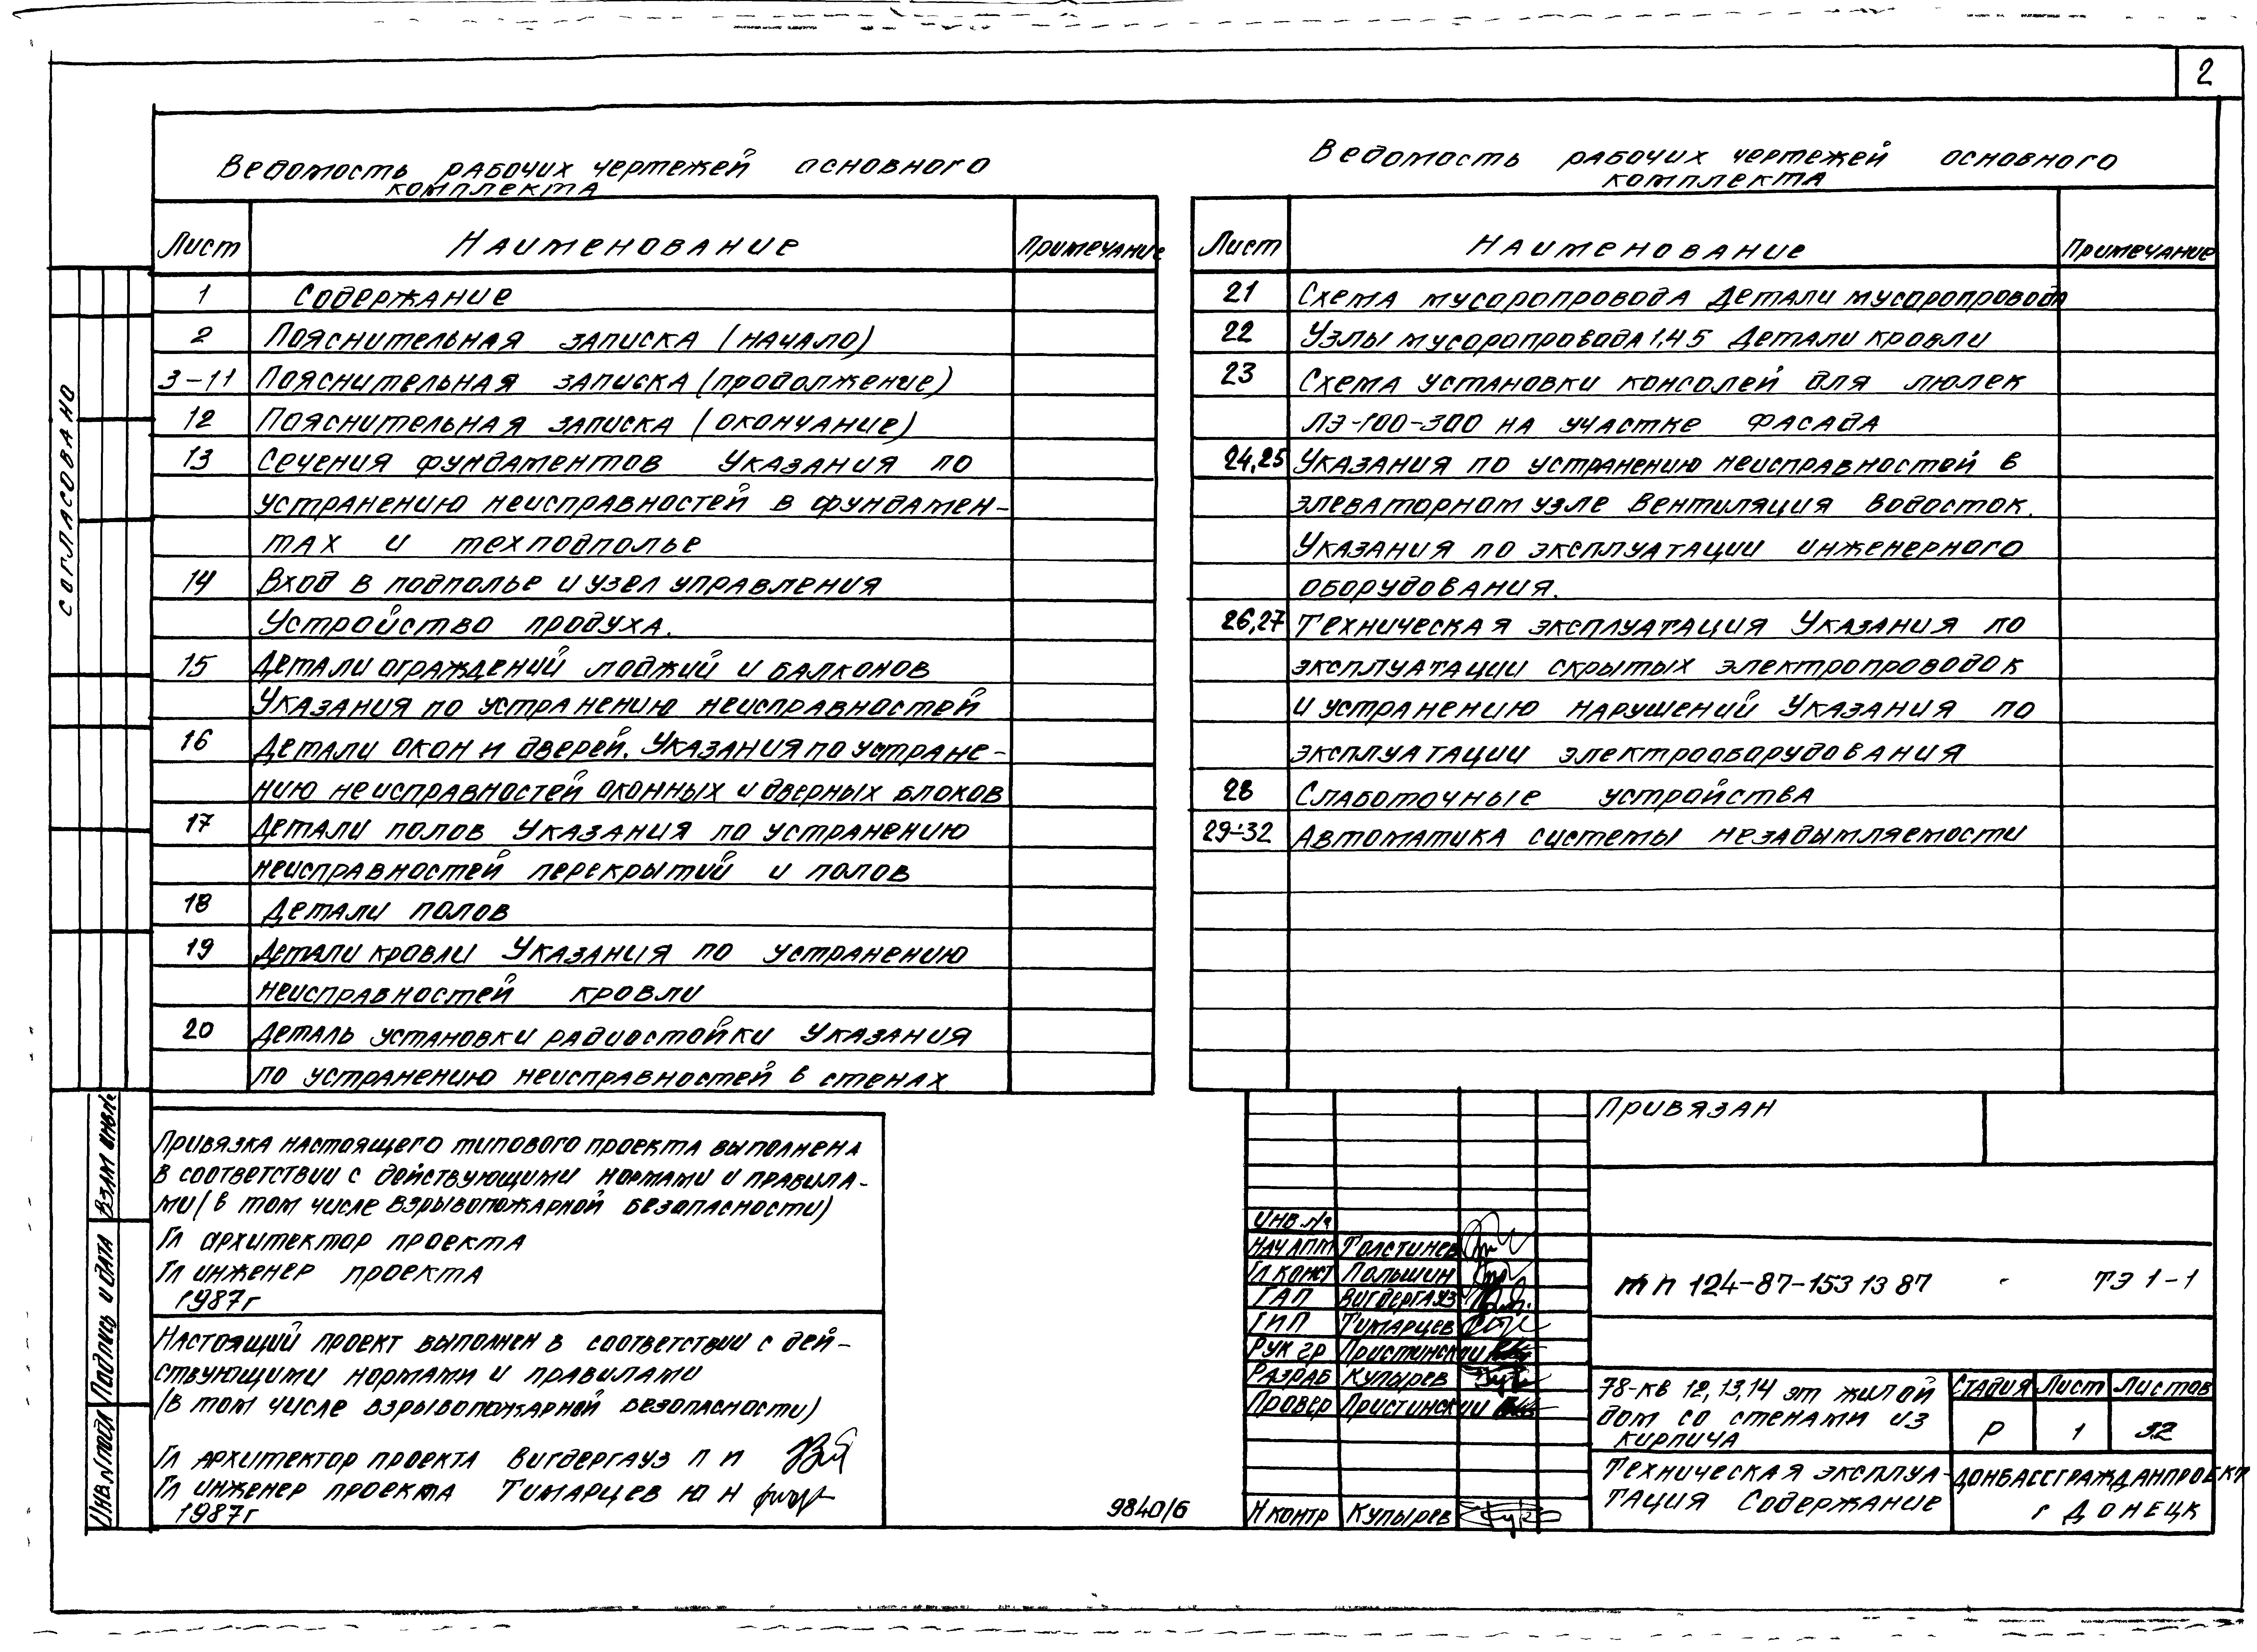 2
Ведомость рабочих чертежей основного
комплекта
Лист Наименование Примечание
1 Содержание
2 Пояснительная записка (начало)
3-11 Пояснительная записка (продолжение)
12 Пояснительная записка (окончание)
13 Сечения фундаментов Указания по
устранению неисправностей в фундамен-
тах и техподполье
14 Вход в подполье и узел управления
Устройство продуха.
15 Детали ограждений лоджий и балконов
Указания по устранению неисправностей
16 Детали окон и дверей. Указания по устране-
нию неисправностей оконных и дверных блоков
17 Детали полов Указания по устранению
неисправностей перекрытий и полов
18 Детали полов
19 Детали кровли Указания по устранению
неисправностей кровли
20 Деталь установки радиостойки Указания
по устранению неисправностей в стенах
Ведомость рабочих чертежей основного
комплекта
Лист Наименование Примечание
21 Схема мусоропровода Детали мусоропровода
22 Узлы мусоропровода 1,4 5 Детали кровли
23 Схема установки консолей для люлек
ЛЭ-100-300 на участке фасада
24,25 Указания по устранению неисправностей в
элеваторном узле Вентиляция Водосток.
Указания по эксплуатации инженерного
оборудования.
26,27 Техническая эксплуатация Указания по
эксплуатации скрытых электропроводок
и устранению нарушений Указания по
эксплуатации электрооборудования
28 Слаботочные устройства
29-32 Автоматика системы незадымляемости
Согласовано
Взам инв.№
Подпись и дата
Инв.N подл
Привязка настоящего типового проекта выполнена
в соответствии с действующими нормами и правила-
ми (в том числе взрывопожарной безопасности)
Гл архитектор проекта
Гл инженер проекта
1987г
Настоящий проект выполнен в соответствии с дей-
ствующими нормами и правилами
(в том числе взрывопожарной безопасности)
Гл архитектор проекта Вигдергауз П И
Гл инженер проекта Тимарцев Ю Н
1987г
9840/6
Привязан
Инв.№
Нач АПМ Толстинев
Гл конст Польшин
ГАП Вигдергауз
ГИП Тимарцев
Рук гр Пристинский
Разраб Купырев
Провер Пристинский
Н контр Купырев
тп 124-87-153 13 87 ТЭ 1-1
78-кв 12,13,14 эт жилой
дом со стенами из
кирпича
Стадия Лист Листов
Р 1 32
Техническая эксплуа-
тация Содержание
Донбассгражданпроект
г Донецк